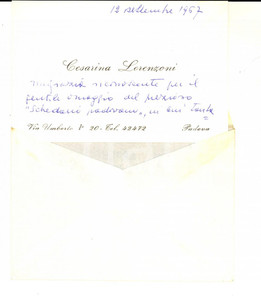 13 settembre 1967
Cesarina Lorenzoni
ringrazia riconoscente per il
gentile omaggio del prezioso
"Schedario padovano", in cui tante
Via Umberto I° 20 - Tel. 22472
Padova